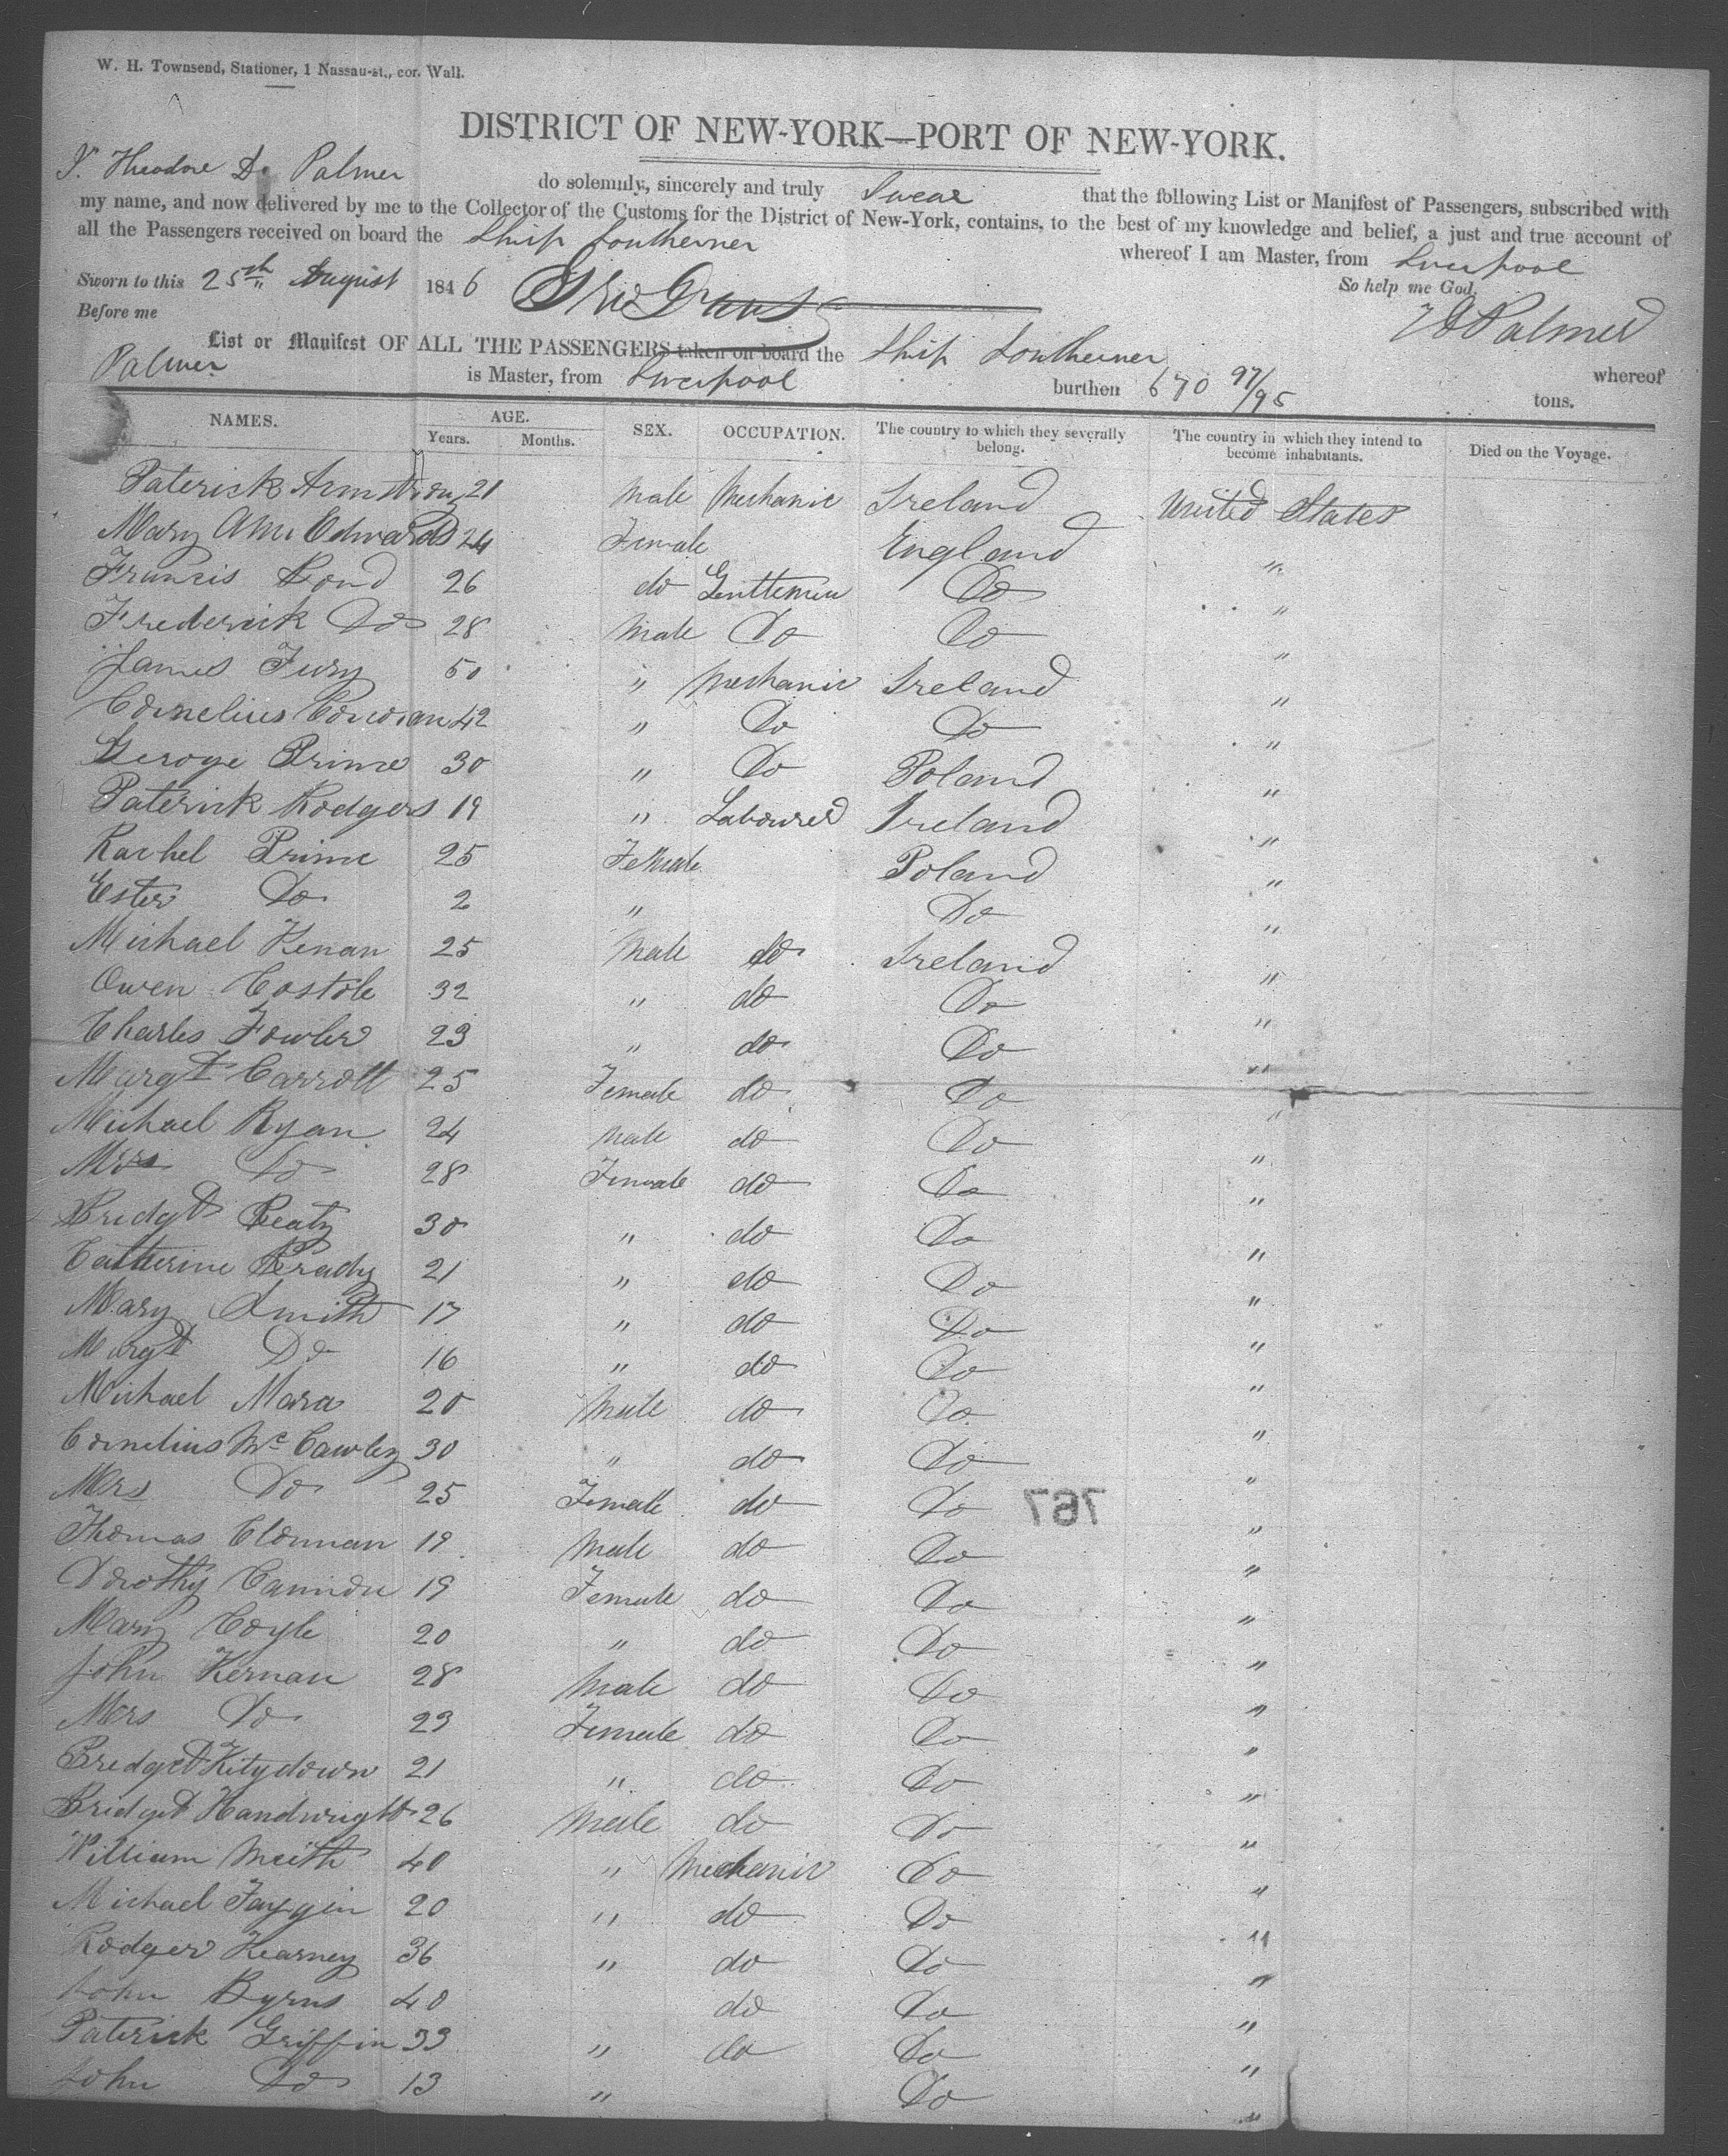 W. H. Townsend, Stationer, 1 Nassau-st., cor. Wall.
DISTRICT OF NEW-YORK—PORT OF NEW-YORK.
I. Theodore D. Palmer do solemnly, sincerely and truly Swear that the following List or Manifest of Passengers, subscribed with
my name, and now delivered by me to the Collector of the Customs for the District of New-York, contains, to the best of my knowledge and belief, a just and true account of
all the Passengers received on board the Ship Southerner whereof I am Master, from Liverpool
Sworn to this 25th August 1846 So help me God.
Before me T D Palmer
List or Manifest OF ALL THE PASSENGERS taken on board the Ship Southerner whereof
Palmer is Master, from Liverpool burthen 670 97/95 tons.
NAMES. AGE. SEX. OCCUPATION. The country to which they severally belong. The country in which they intend to become inhabitants. Died on the Voyage.
Years. Months.
Paterick Armstrong 21 Male Mechanic Ireland United States
Mary Ann Edwards 24 Female England "
Francis Bond 26 do Gentlemen Do "
Frederick Do 28 Male Do Do "
James Fury 50 " Mechanic Ireland "
Cornelius 42 " Do Do "
Geroge Prime 30 " Do Poland "
Paterick Rodgers 19 " Labourer Ireland "
Rachel Prime 25 Female Poland "
Ester Do 2 " Do "
Michael Kenan 25 Male do Ireland "
Owen Costole 32 " do Do "
Charles Fowler 23 " do Do "
Margt Carroll 25 Female do Do "
Michael Ryan 24 Male do Do "
Mrs Do 28 Female do Do "
Bridgt Beaty 30 " do Do "
Catherine Brady 21 " do Do "
Mary Smith 17 " do Do "
Margt Do 16 " do Do "
Michael Mara 20 Male do Do "
Cornelius Mc Cawley 30 " do Do "
Mrs Do 25 Female do Do "
767
Thomas Clonnan 19 Male do Do "
Dorothy 19 Female do Do "
Mary Coyle 20 " do Do "
John Kernan 28 Male do Do "
Mrs Do 23 Female do Do "
Bredget Kitydown 21 " do Do "
Bridget Handwright 26 Male do Do "
William Meith 40 " Mechanic Do "
Michael Faggin 20 " do Do "
Rodger Kearney 36 " do Do "
John Byrns 40 do Do "
Paterick Griffin 33 " do Do "
John Do 13 " Do "